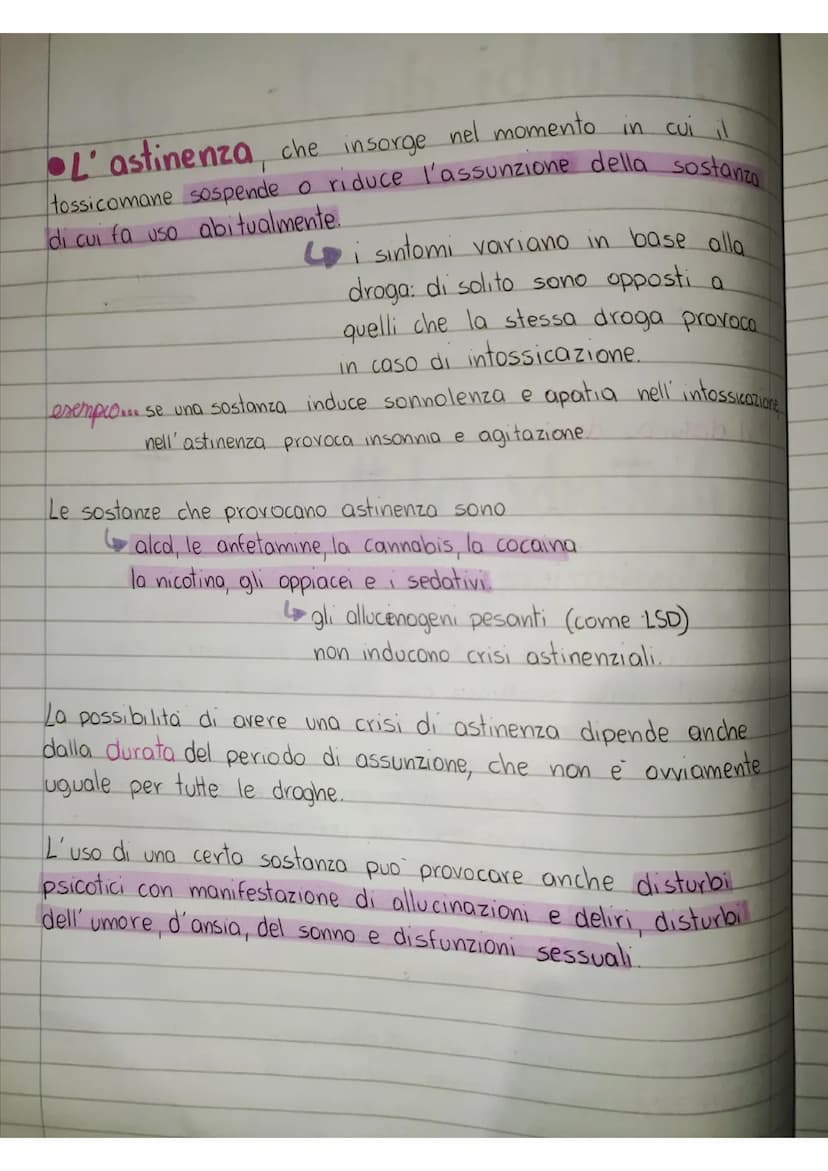 • L'astinenza, che insorge nel momento in cui il
tossicomane sospende o riduce l'assunzione della sostanza
di cui fa uso abitualmente.
↳ i sintomi variano in base alla
droga: di solito sono opposti a
quelli che la stessa droga provoca
in caso di intossicazione.
esempio... se una sostanza induce sonnolenza e apatia nell'intossicazione,
nell'astinenza provoca insonnia e agitazione.
Le sostanze che provocano astinenza sono
↳ alcol, le anfetamine, la cannabis, la cocaina
la nicotina, gli oppiacei e i sedativi.
↳ gli allucenogeni pesanti (come LSD)
non inducono crisi astinenziali.
La possibilità di avere una crisi di astinenza dipende anche
dalla durata del periodo di assunzione, che non è ovviamente
uguale per tutte le droghe.
L'uso di una certa sostanza può provocare anche disturbi
psicotici con manifestazione di allucinazioni e deliri, disturbi
dell'umore, d'ansia, del sonno e disfunzioni sessuali.